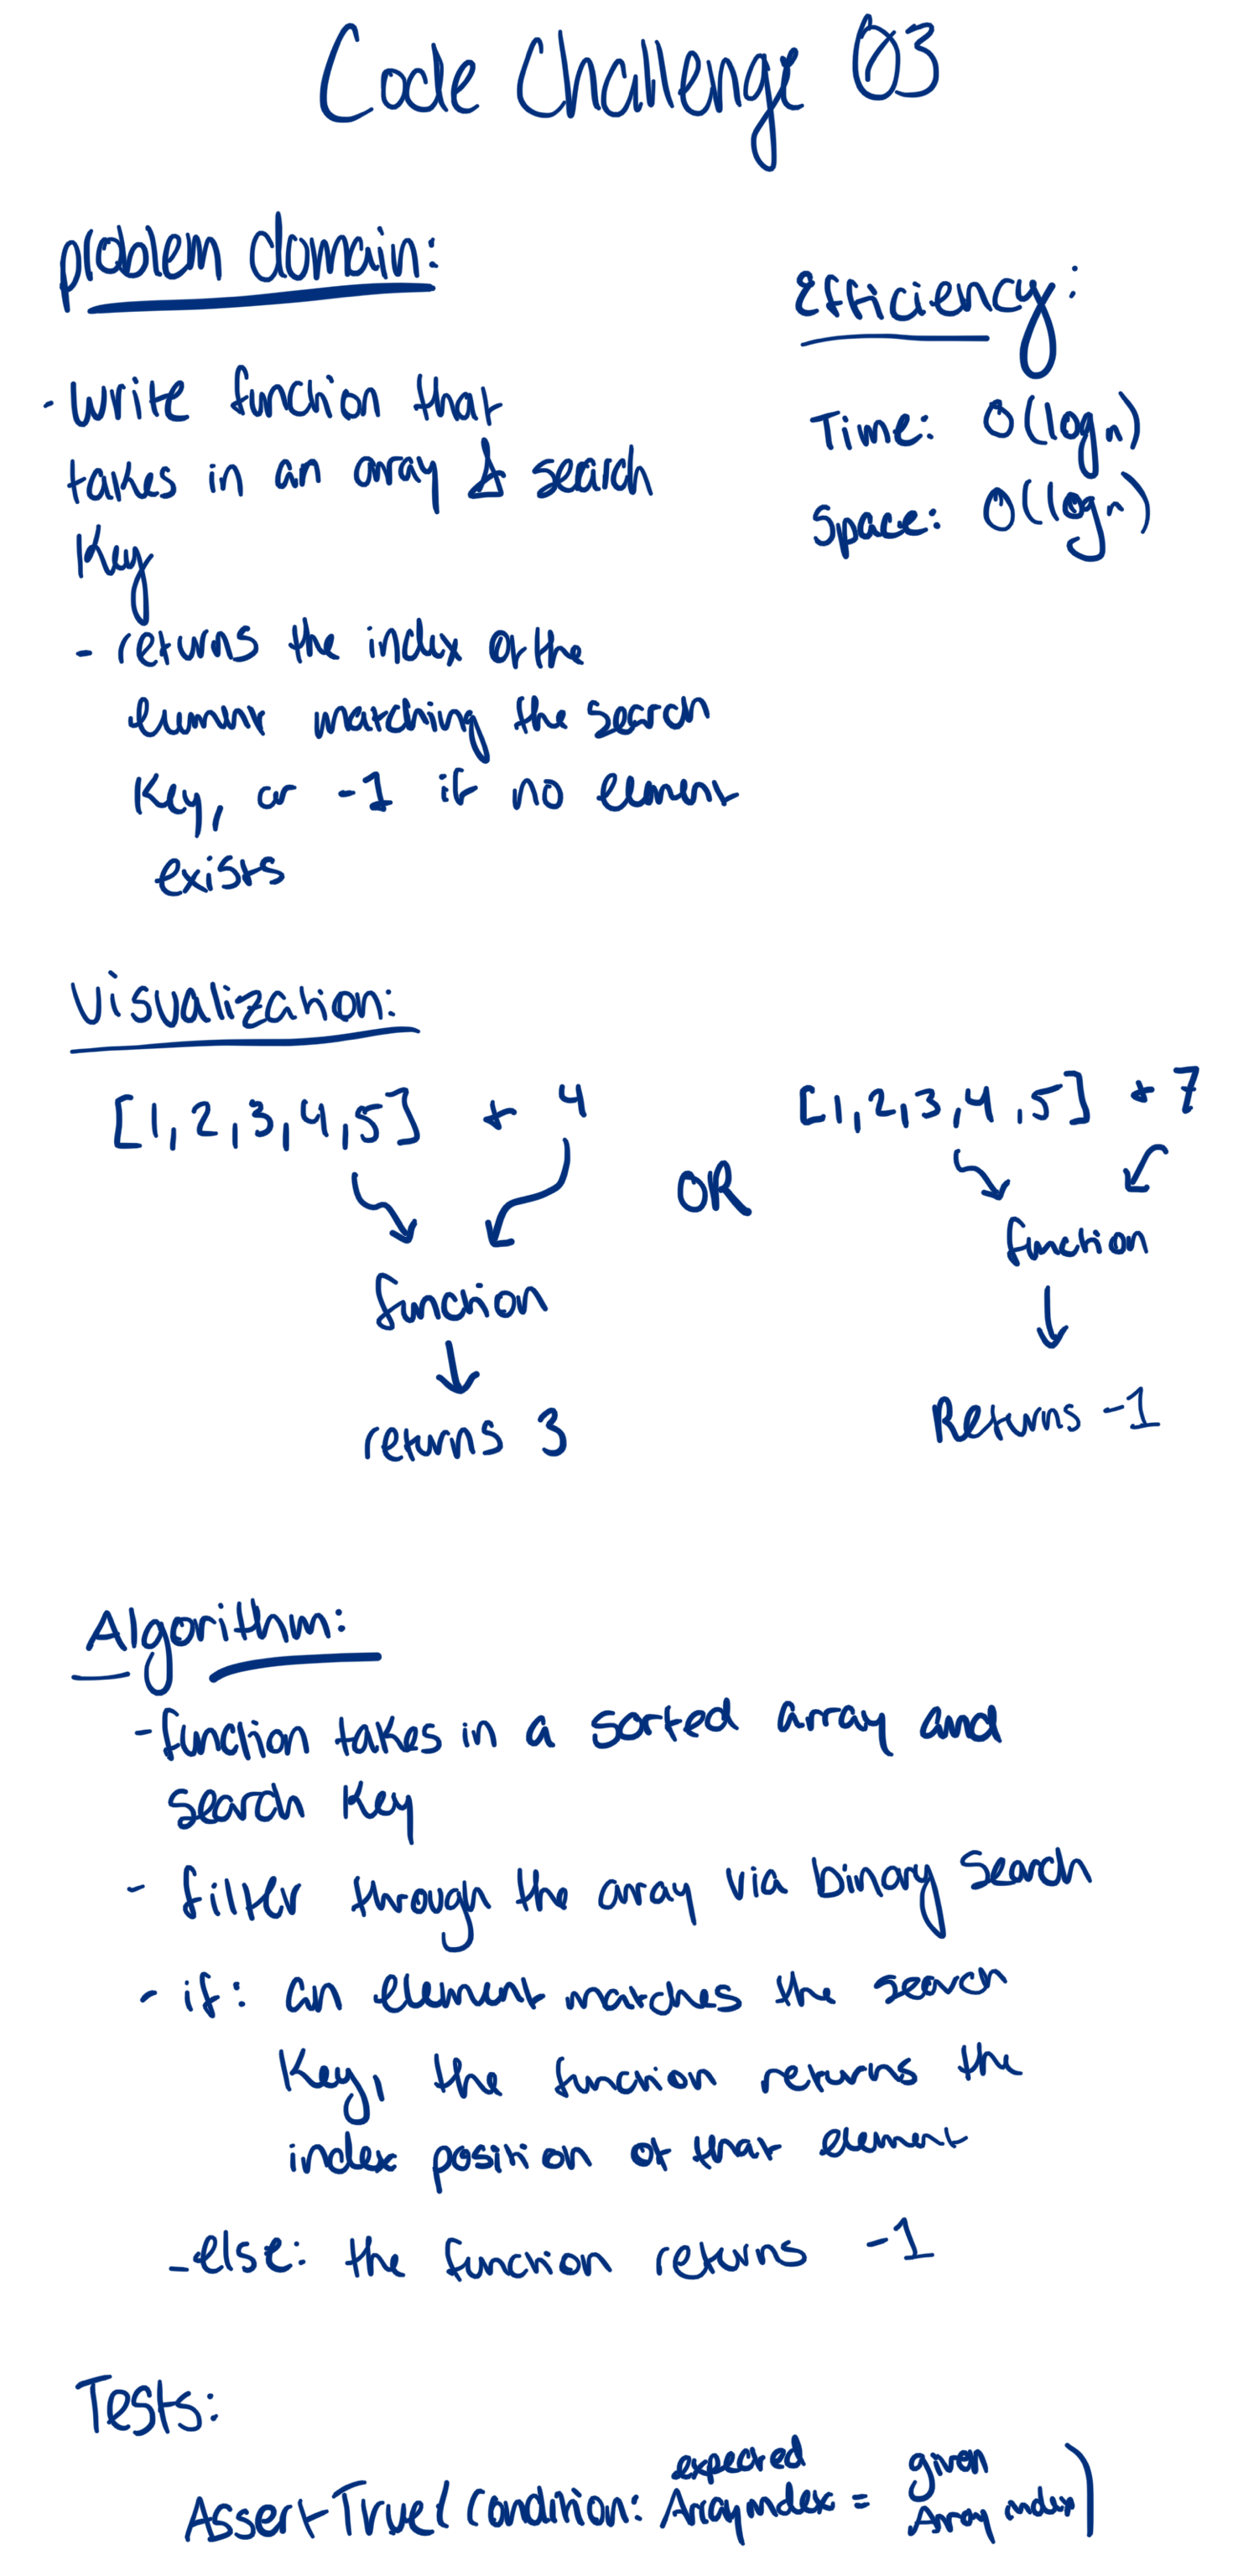 Code Challenge 03
problem domain:
- write function that
takes in an array & search
Key
- returns the index of the
element matching the search
key, or -1 if no element
exists
Efficiency:
Time: O(log n)
Space: O(log n)
Visualization:
[1,2,3,4,5] + 4
function
returns 3
OR
[1,2,3,4,5] + 7
function
Returns -1
Algorithm:
- function takes in a sorted array and
search key
- filter through the array via binary search
- if: an element matches the search
key, the function returns the
index position of that element
- else: the function returns -1
Tests:
expected given
AssertTrue(condition: Array index = Array index)